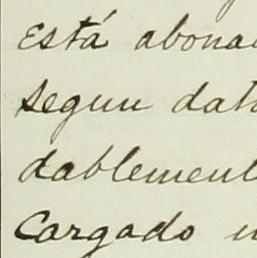 Está abona
segun dat
dablement
Cargado